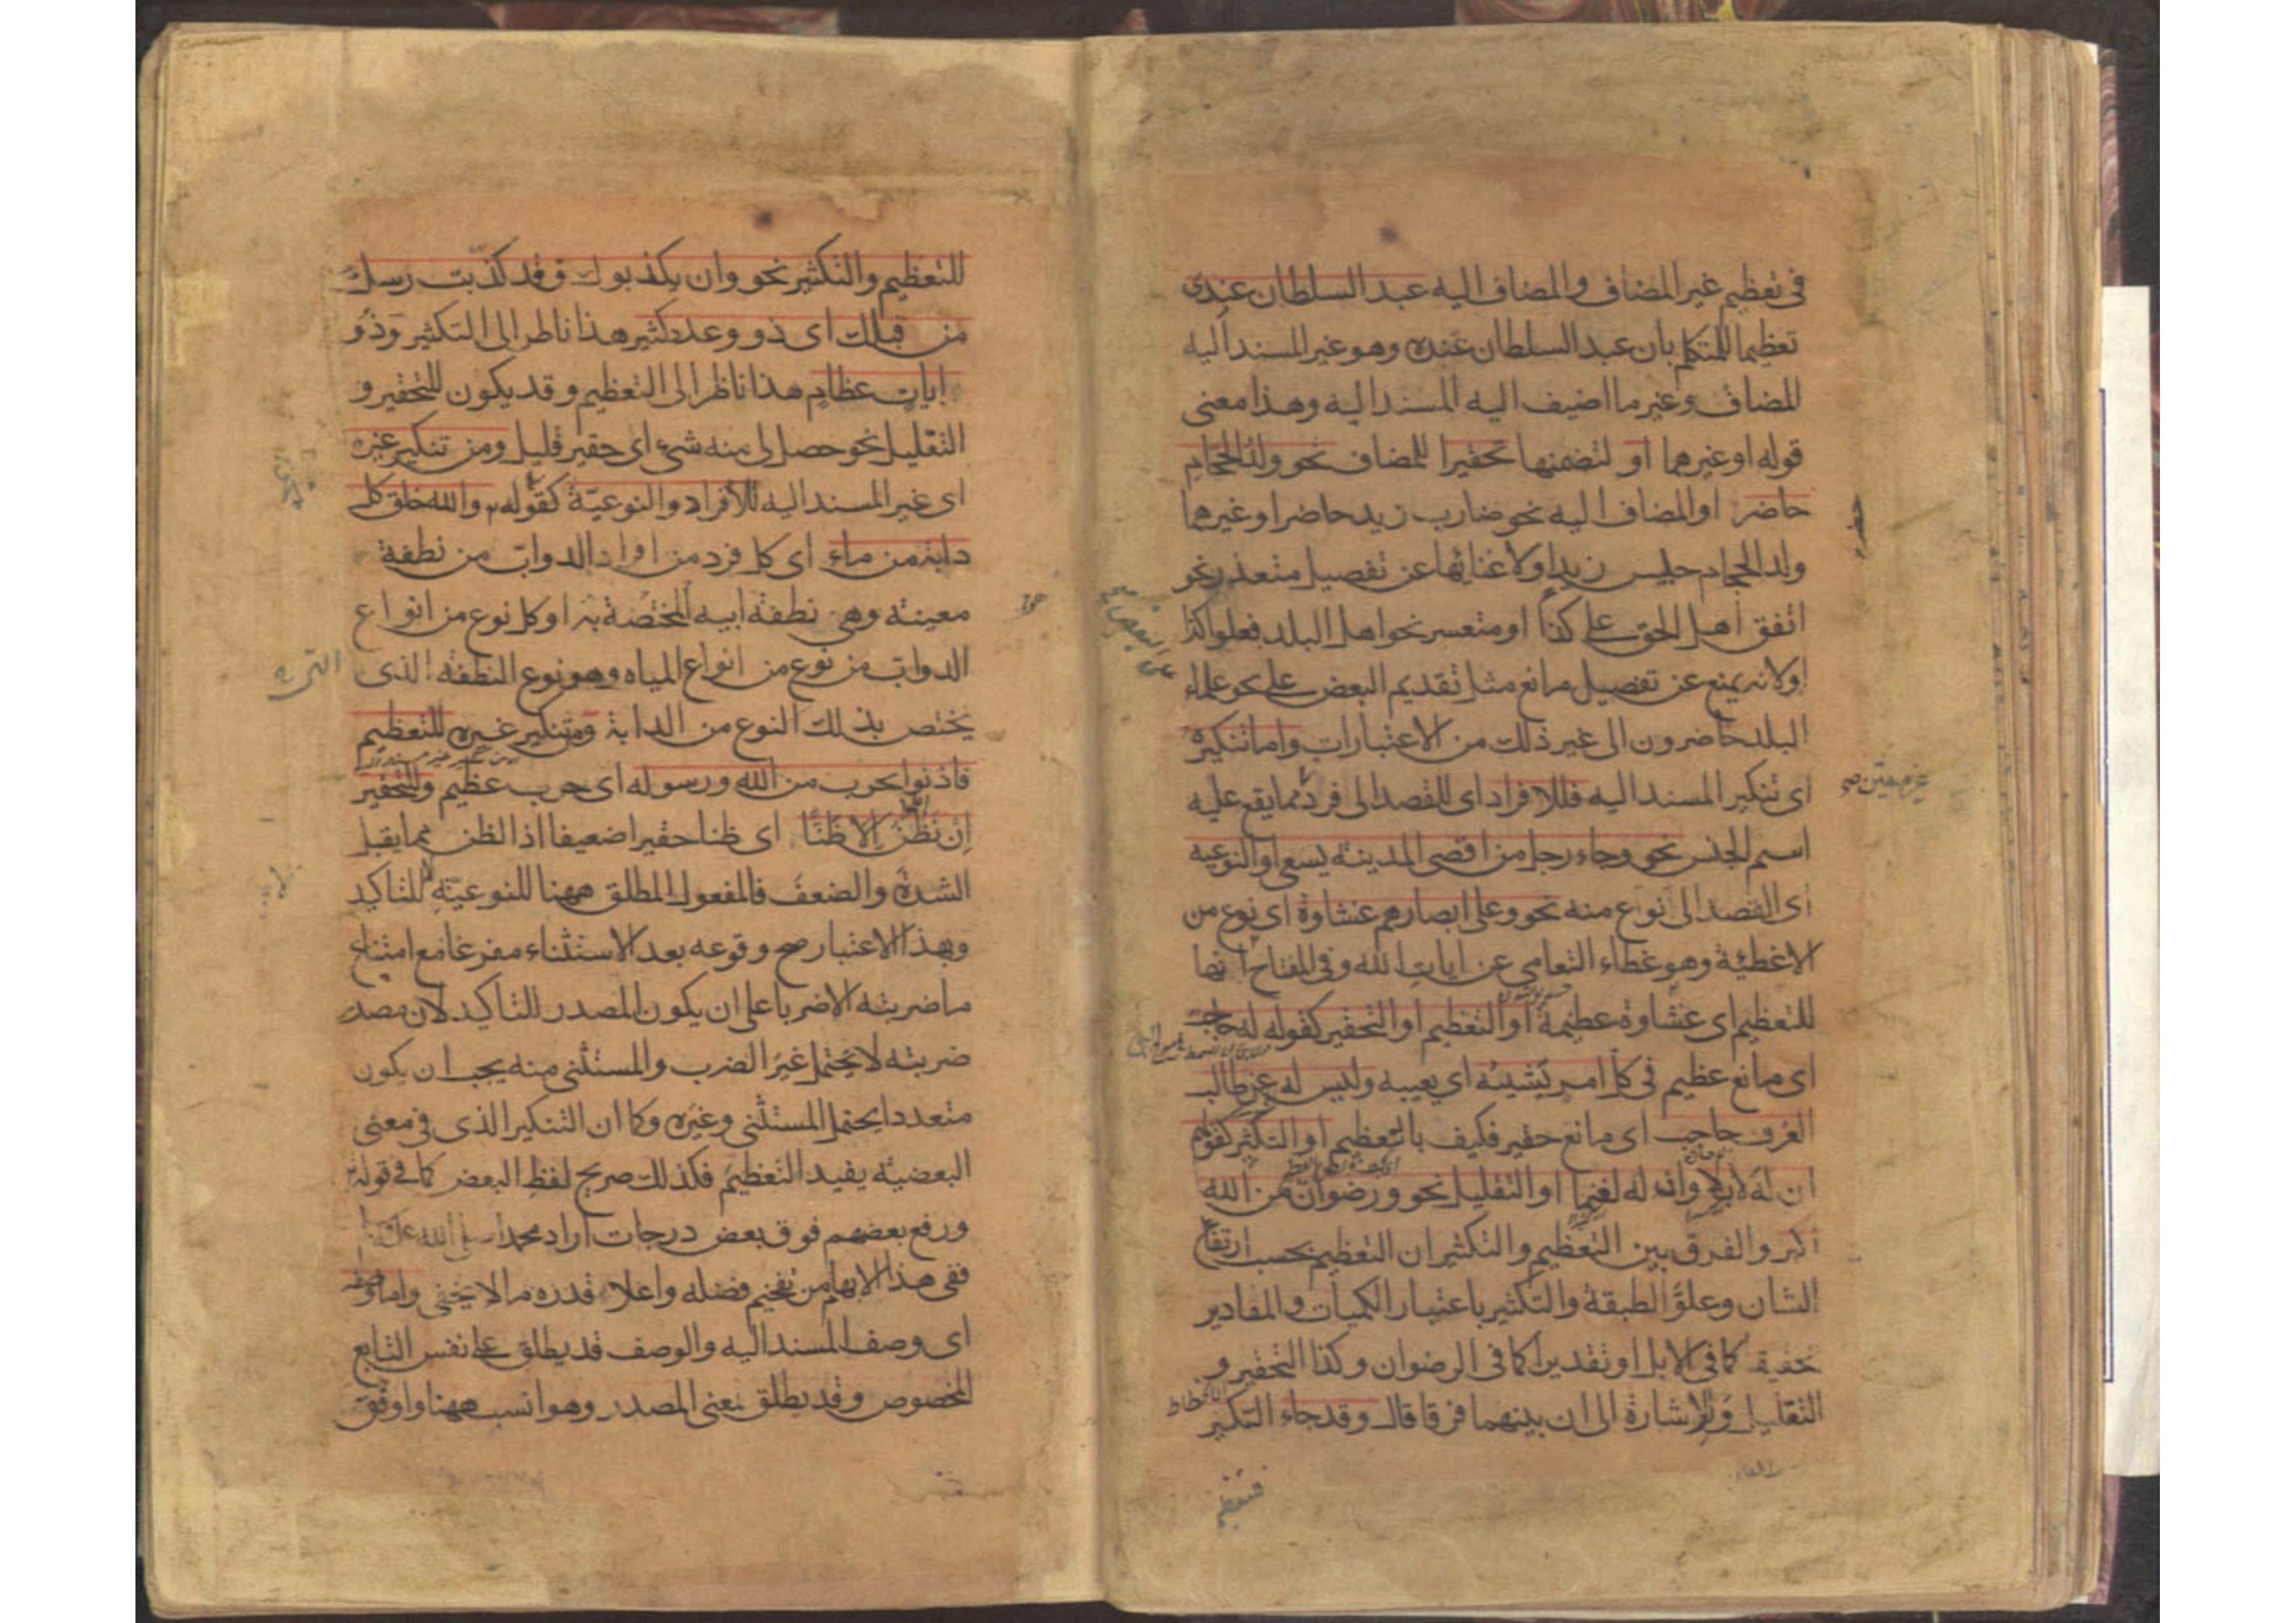 فى تعظيم غير المضاف والمضاف اليه عبد السلطان عندى
تعظيما للمتكلم بان عبد السلطان عنده وهو غير المسند اليه
المضاف وغير ما اضيف اليه المسند اليه وهذا معنى
قوله او غيرهما او لتضمنها تحقيرا للمضاف نحو ولد الحجام
حاضر او المضاف اليه نحو ضارب زيد حاضر او غيرهما
ولد الحجام جليس زيد او لاغنائها عن تفصيل متعذر نحو
اتفق اهل الحق على كذا او متعسر نحو اهل البلد فعلوا كذا
او لانه يمنع عن تفصيل مانع مثل تقديم البعض على نحو علماء
البلد حاضرون الى غير ذلك من الاعتبارات واما تنكيره
اى تنكير المسند اليه فللافراد اى للقصد الى فرد مما يقع عليه
اسم الجنس نحو وجاء رجل من اقصى المدينه يسعى او النوعيه
اى القصد الى نوع منه نحو وعلى ابصارهم غشاوة اى نوع من
الاغطية وهو غطاء التعامى عن ايات الله وفى المفتاح انها
للتعظيم اى غشاوة عظيمة او التعظيم او التحقير كقوله له حاجب
اى مانع عظيم فى كل امر يشينه اى يعيبه وليس له عن طالب
العرف حاجب اى مانع حقير فكيف بالتعظيم او التكثير كقولهم
ان له لابلا وان له لغنما او التقليل نحو ورضوان من الله
اكبر والفرق بين التعظيم والتكثير ان التعظيم بحسب ارتفاع
الشان وعلو الطبقة والتكثير باعتبار الكميات والمقادير
حقيقة كما فى الابل او تقديرا كما فى الرضوان وكذا التحقير و
التقليل وللاشارة الى ان بينهما فرقا قال وقد جاء التنكير
غير معين صح
للتعظيم والتكثير نحو وان يكذبوك فقد كذبت رسل
من قبلك اى ذوو عدد كثير هذا ناظر الى التكثير وذو
ايات عظام هذا ناظر الى التعظيم وقد يكون للتحقير و
التقليل نحو حصل لى منه شىء اى حقير قليل ومن تنكير غيره
اى غير المسند اليه للافراد والنوعية كقوله والله خلق كل
دابة من ماء اى كل فرد من افراد الدواب من نطفة
معينة وهى نطفة ابيه المختصة به او كل نوع من انواع
الدواب من نوع من انواع المياه وهو نوع النطفة الذى
يختص بذلك النوع من الدابة ومن تنكير غيره للتعظيم
فاذنوا بحرب من الله ورسوله اى حرب عظيم وللتحقير
ان نظن الا ظنا اى ظنا حقيرا ضعيفا اذ الظن مما يقبل
الشدة والضعف فالمفعول المطلق ههنا للنوعية لا للتاكيد
وبهذا الاعتبار صح وقوعه بعد الاستثناء مفرغا مع امتناع
ما ضربته الا ضربا على ان يكون المصدر للتاكيد لان مصدر
ضربته لا يحتمل غير الضرب والمستثنى منه يجب ان يكون
متعددا يحتمل المستثنى وغيره وكما ان التنكير الذى فى معنى
البعضية يفيد التعظيم فكذلك صريح لفظ البعض كما فى قوله
ورفع بعضهم فوق بعض درجات اراد محمدا صلى الله عليه
ففى هذا الابهام من تفخيم فضله واعلاء قدره ما لا يخفى واما وصفه
اى وصف المسند اليه والوصف قد يطلق على نفس التابع
المخصوص وقد يطلق بمعنى المصدر وهو انسب ههنا واوفق